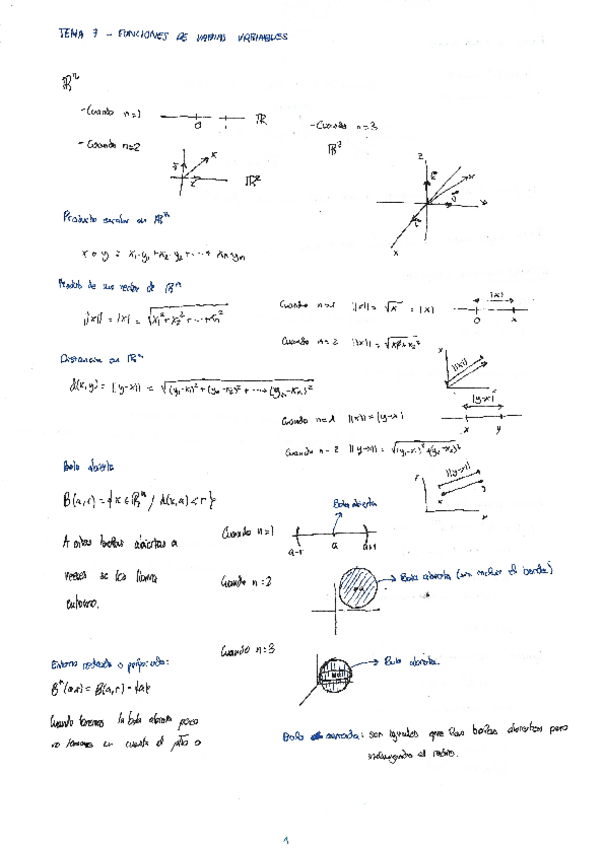 TEMA 7 - FUNCIONES DE VARIAS VARIABLES
ℝⁿ
- Cuando n=1
0 1 ℝ
- Cuando n=2
x
ℝ²
- Cuando n=3
ℝ³
z
x
Producto escalar en ℝⁿ
x o y = x₁·y₁ + x₂·y₂ + ... + xₙyₙ
Módulo de un vector de ℝⁿ
||x|| = |x| = √x₁² + x₂² + ... + xₙ²
Cuando n=1 ||x|| = √x² = |x|
|x|
0 x
Cuando n=2 ||x|| = √x₁² + x₂²
||x||
Distancia en ℝⁿ
d(x,y) = ||y-x|| = √(y₁-x₁)² + (y₂-x₂)² + ... + (yₙ-xₙ)²
Cuando n=1 ||x|| = |y-x|
|y-x|
x y
Cuando n=2 ||y-x|| = √(y₁-x₁)² + (y₂-x₂)²
||y-x||
Bola abierta
B(a,r) = {x ∈ ℝⁿ / d(x,a) < r}
A estas bolas abiertas a
veces se les llama
entorno.
Cuando n=1
Bola abierta
a-r a a+r
Cuando n=2
Bola abierta (sin incluir el borde)
Cuando n=3
Bola abierta.
Entorno reducido o perforado:
B*(a,r) = B(a,r) - {a}
Cuando tenemos la bola abierta pero
no tenemos en cuenta el pto a
Bola cerrada: son iguales que las bolas abiertas pero
incluyendo el
1